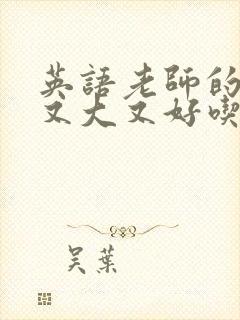 英語老師的
又大又好喫
吴葉